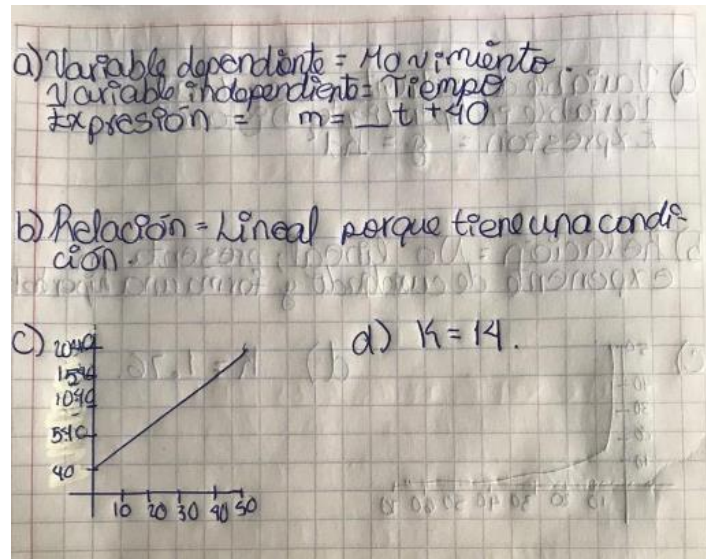 a) Variable dependiente = Movimiento.
Variable independiente = Tiempo
Expresión = m = _t + 40
b) Relación = Lineal porque tiene una condi-
ción.
c)
2040
1540
1040
540
40
10 20 30 40 50
d) K = 14.